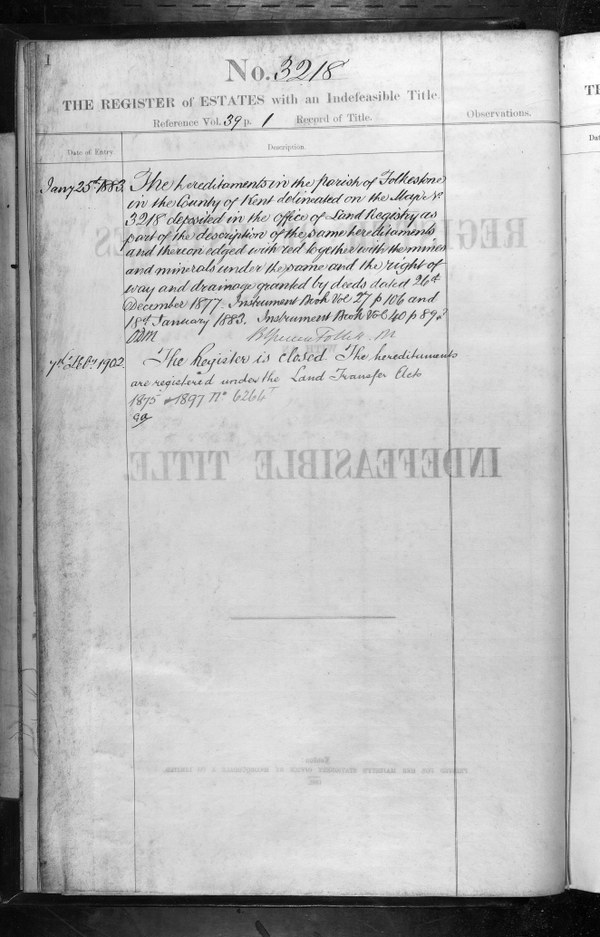 1
No. 3218
THE REGISTER of ESTATES with an Indefeasible Title.
Reference Vol. 39 p. 1 Record of Title.
Observations.
Date of Entry
Description.
Jany 25th 1883.
The hereditaments in the parish of Folkestone
in the County of Kent delineated on the Map No
3218 deposited in the office of Land Registry as
part of the description of the same hereditaments
and thereon edged with red together with the mines
and minerals under the same and the right of
way and drainage granted by deeds dated 26th
December 1877. Instrument Book Vol 27 p 106 and
18th January 1883. Instrument Book Vol 40 p 89.
7th Feby 1902.
The Register is closed. The hereditaments
are registered under the Land Transfer Acts
1875 & 1897 No 6266
INDEFEASIBLE TITLE